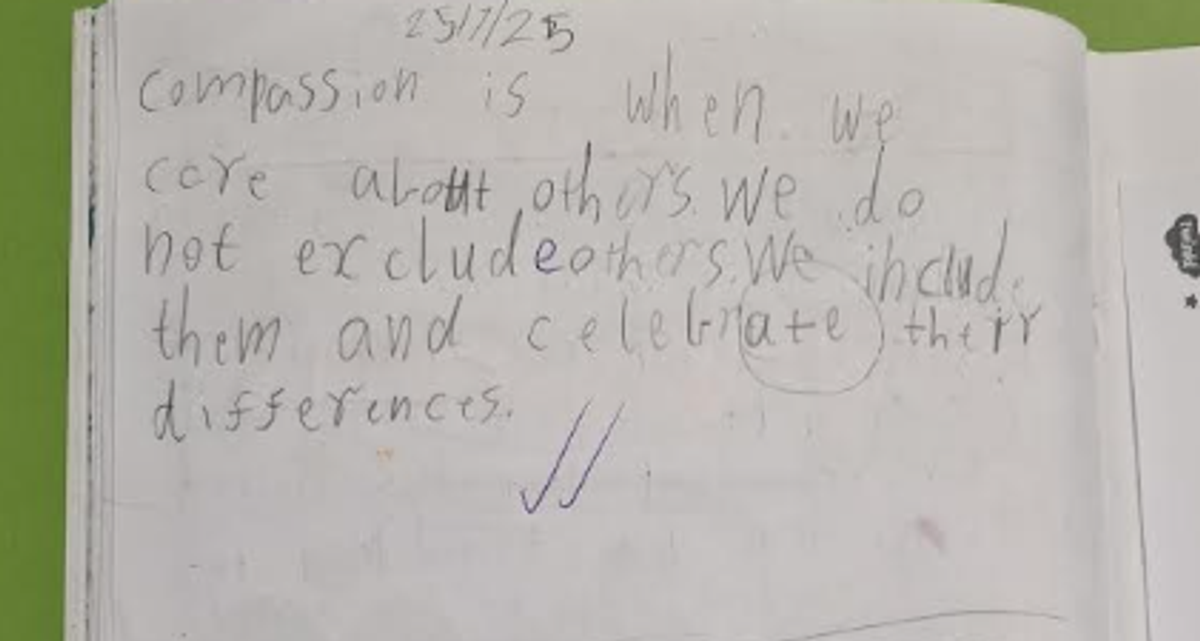 25/7/25
compassion is when we
care about others. We do
not exclude others. We include
them and celebrate their
differences.